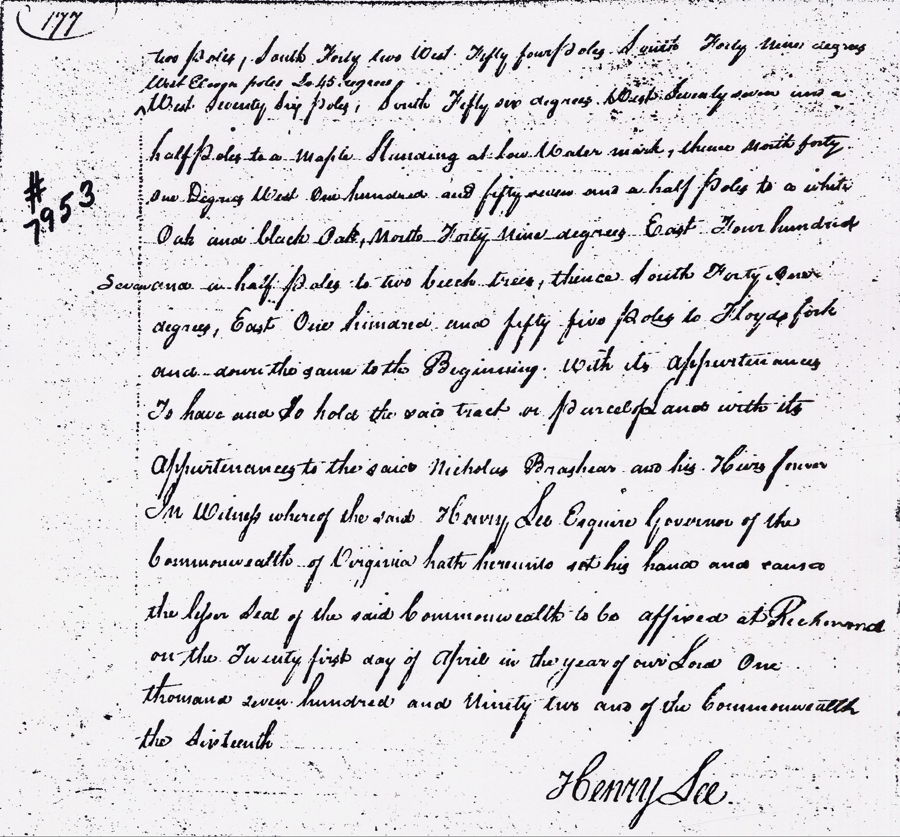 177
two poles, South Forty two West Fifty four poles South Forty Nine degrees
West Eleven poles So 45 degrees
West Seventy six poles, South Fifty six degrees West Seventy seven and a
half poles to a Maple Standing at low Water mark, thence North forty
one Degrees West One hundred and fifty seven and a half poles to a white
#7953
Oak and black Oak, North Forty Nine degrees East Four hundred
Seven and a half poles to two beech trees, thence South Forty One
degrees, East One hundred and fifty five Poles to Floyds fork
and down the same to the Beginning. With its Appurtenances
To have and To hold the said tract or parcel of Land with its
Appurtenances to the said Nicholas Brashear and his Heirs forever
In Witness whereof the said Henry Lee Esquire Governor of the
Commonwealth of Virginia hath hereunto set his hand and caused
the lesser Seal of the said Commonwealth to be affixed at Richmond
on the Twenty first day of April in the year of our Lord One
thousand seven hundred and Ninity two and of the Commonwealth
the Sixteenth
Henry Lee.